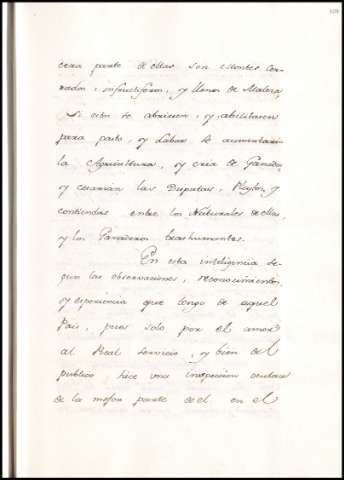 cera parte de ellas son Montes Cer-
rados, infructiferos, y llenos de Maleza,
Si esto se abriesen, y abilitasen
para pasto, y Labor se aumentaria
la Agricultura, y cria de Ganados
y cesarian las Disputas, Pleytos, y
contiendas entre los Naturales de ellas,
y los Ganaderos trashumantes.
En esta inteligencia se-
gun las observaciones, reconocimientos
y esperiencia que tengo de aquel
Pais, pues solo por el amor
al Real servicio, y bien del
publico hice una inspeccion ocular
de la mejor parte de el en el